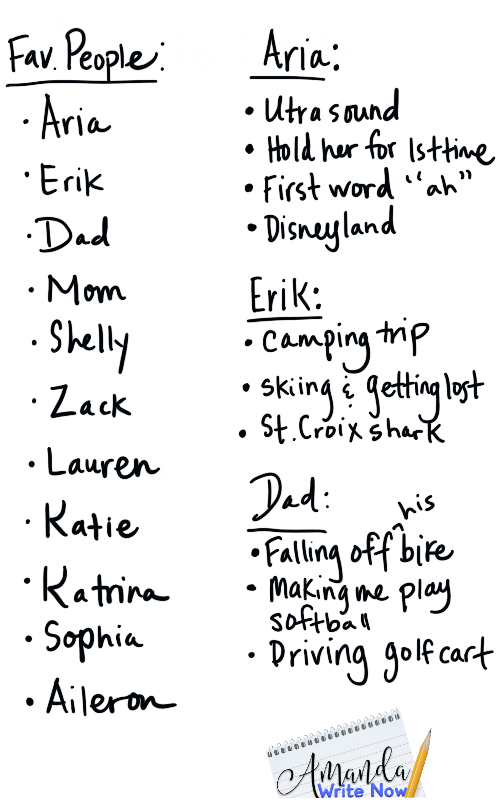 Fav. People:
• Aria
• Erik
• Dad
• Mom
• Shelly
• Zack
• Lauren
• Katie
• Katrina
• Sophia
• Aileron
Aria:
• Utrasound
• Hold her for 1st time
• First word "ah"
• Disneyland
Erik:
• camping trip
• skiing & getting lost
• St. Croix shark
Dad:
• Falling off his bike
• Making me play
softball
• Driving golf cart
Amanda
Write Now